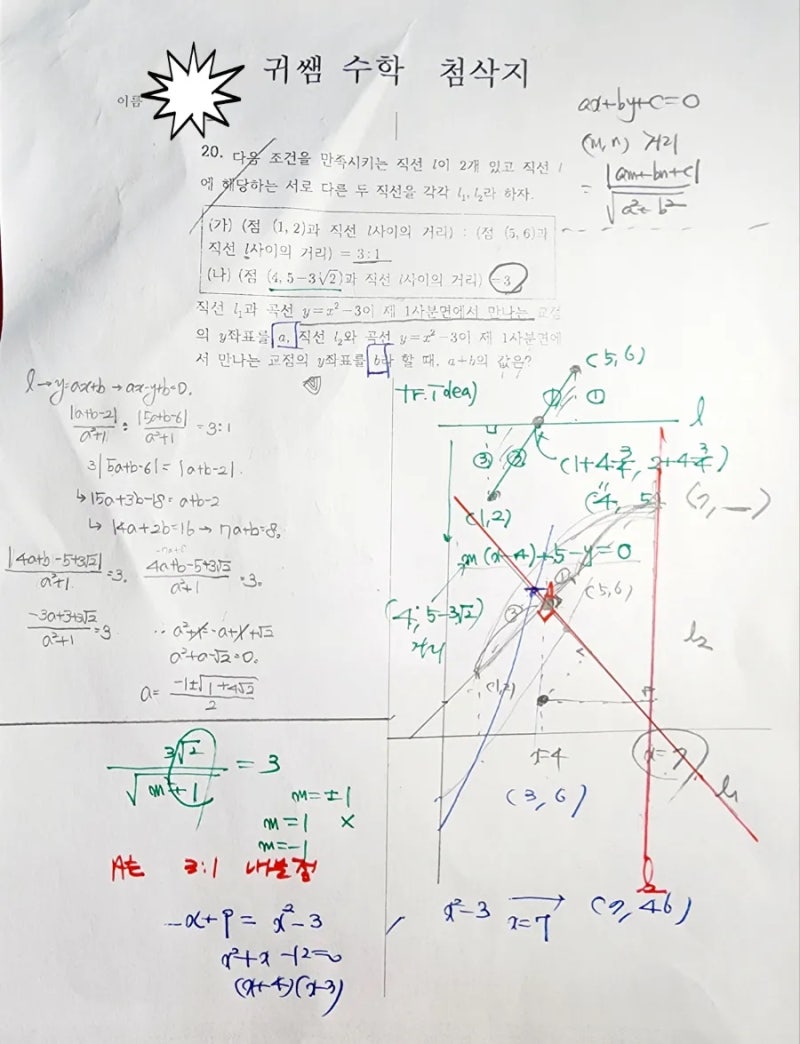 귀쌤 수학 첨삭지
이름
ax+by+c=0
(m, n) 거리
= |am+bn+c| / √a²+b²
20. 다음 조건을 만족시키는 직선 l이 2개 있고 직선 l
에 해당하는 서로 다른 두 직선을 각각 l₁, l₂라 하자.
(가) (점 (1, 2)과 직선 l사이의 거리) : (점 (5, 6)과
직선 l사이의 거리) = 3:1
(나) (점 (4, 5-3√2)과 직선 l사이의 거리) =3
직선 l₁과 곡선 y=x²-3이 제 1사분면에서 만나는 교점
의 y좌표를 a, 직선 l₂와 곡선 y=x²-3이 제 1사분면에
서 만나는 교점의 y좌표를 b라 할 때, a+b의 값은?
l→y=ax+b → ax-y+b=0.
|a+b-2| / a²+1 : |5a+b-6| / a²+1 = 3:1
3|5a+b-6| = |a+b-2|.
↳ 15a+3b-18= a+b-2
↳ 14a+2b=16 → 7a+b=8.
|4a+b-5+3√2| / a²+1 =3. 4a+b-5+3√2 / a²+1 =3.
-3a+3+3√2 / a²+1 =3 ∴ a²+1=-a+1+√2
a²+a-√2=0.
a= -1±√1+4√2 / 2
tr. Idea)
(5, 6)
① ①
l
③ ③
(1+4·3/4, 2+4·3/4)
(4, 5)
(7, —)
(1, 2)
m(x-4)+5-y=0
(4, 5-3√2)
거리
①
(5, 6)
③
(1, 2)
l₂
x=4
x=7
l₁
(3, 6)
l₂
3√2 / √m²+1 = 3
m=±1
m=1 ×
m=-1
A는 3:1 내분점
-x+9 = x²-3
x²+x-12=0
(x+4)(x-3)
x²-3 → x=7 (7, 46)